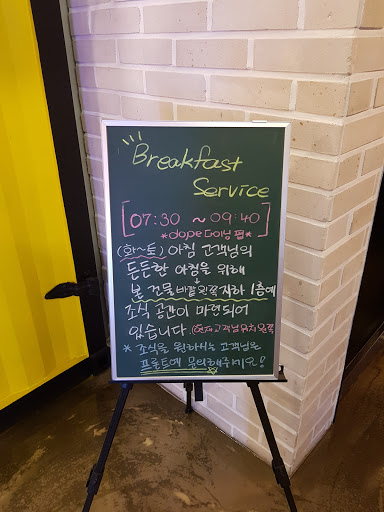 Breakfast
Service
[07:30 ~ 09:40]
*dope Doing 펍*
(화~토) 아침 고객님의
든든한 아침을 위해
본 건물 바깥 왼쪽 지하 1층에
조식 공간이 마련되어
있습니다. (현재 고객님 위치 왼쪽
* 조식을 원하시는 고객님은
프론트에 문의해주세요!